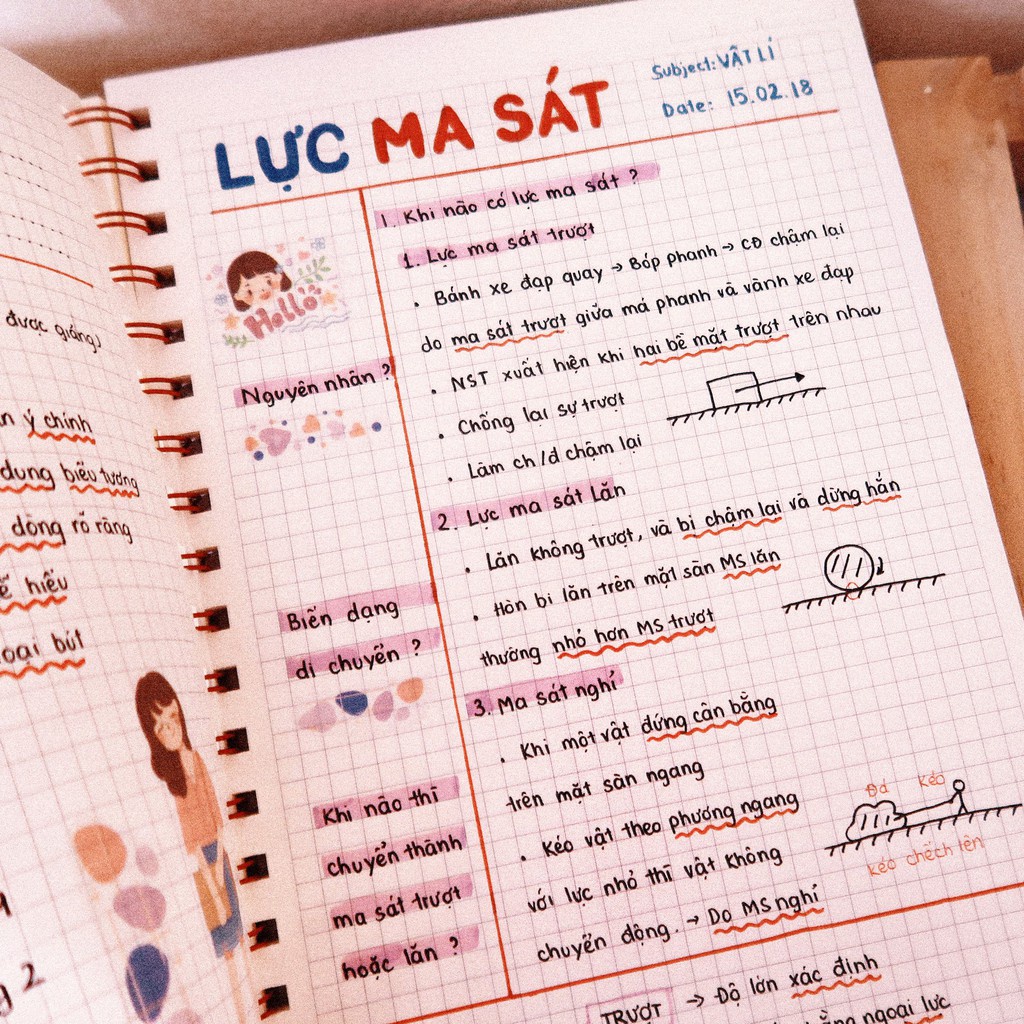 được giảng
ý chính
dung biểu tượng
dòng rõ ràng
hiểu
loại bút
2
LỰC MA SÁT
Subject: VẬT LÍ
Date: 15.02.18
Hello
Nguyên nhân ?
Biến dạng
di chuyển ?
Khi nào thì
chuyển thành
ma sát trượt
hoặc lăn ?
1. Khi nào có lực ma sát ?
1. Lực ma sát trượt
• Bánh xe đạp quay → Bóp phanh → CĐ chậm lại
do ma sát trượt giữa má phanh và vành xe đạp
• NST xuất hiện khi hai bề mặt trượt trên nhau
• Chống lại sự trượt
• Làm ch/đ chậm lại
2. Lực ma sát Lăn
• Lăn không trượt, và bị chậm lại và dừng hẳn
• Hòn bi lăn trên mặt sàn MS lăn
thường nhỏ hơn MS trượt
3. Ma sát nghỉ
• Khi một vật đứng cân bằng
trên mặt sàn ngang
• Kéo vật theo phương ngang
với lực nhỏ thì vật không
chuyển động. → Do MS nghỉ
Đá kéo
kéo chếch lên
TRƯỢT → Độ lớn xác định
bằng ngoại lực